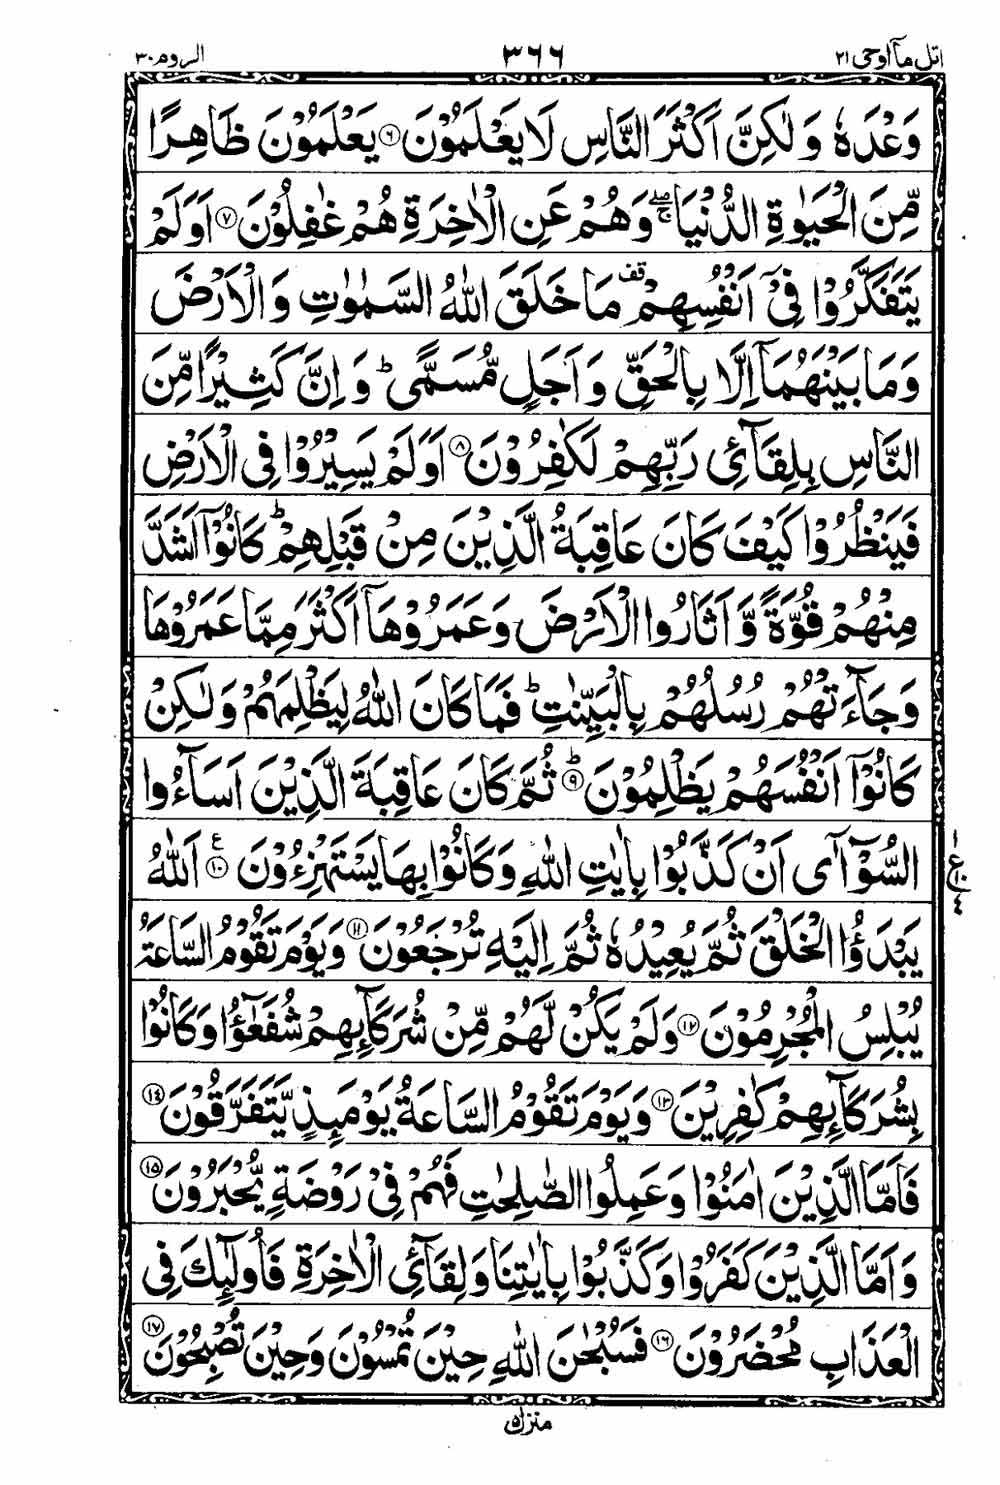 اتل مآ اوحی ۲۱
۳۶۶
الروم ۳۰
وَعْدَهٗ وَلٰكِنَّ اَكْثَرَ النَّاسِ لَا يَعْلَمُوْنَ ۶ يَعْلَمُوْنَ ظَاهِرًا
مِّنَ الْحَيٰوةِ الدُّنْيَا ۖۚ وَهُمْ عَنِ الْاٰخِرَةِ هُمْ غٰفِلُوْنَ ۷ اَوَلَمْ
يَتَفَكَّرُوْا فِيْٓ اَنْفُسِهِمْ قف مَا خَلَقَ اللّٰهُ السَّمٰوٰتِ وَالْاَرْضَ
وَمَا بَيْنَهُمَآ اِلَّا بِالْحَقِّ وَاَجَلٍ مُّسَمًّى ؕ وَاِنَّ كَثِيْرًا مِّنَ
النَّاسِ بِلِقَآئِ رَبِّهِمْ لَكٰفِرُوْنَ ۸ اَوَلَمْ يَسِيْرُوْا فِي الْاَرْضِ
فَيَنْظُرُوْا كَيْفَ كَانَ عَاقِبَةُ الَّذِيْنَ مِنْ قَبْلِهِمْ ؕ كَانُوْٓا اَشَدَّ
مِنْهُمْ قُوَّةً وَّاَثَارُوا الْاَرْضَ وَعَمَرُوْهَآ اَكْثَرَ مِمَّا عَمَرُوْهَا
وَجَآءَتْهُمْ رُسُلُهُمْ بِالْبَيِّنٰتِ ؕ فَمَا كَانَ اللّٰهُ لِيَظْلِمَهُمْ وَلٰكِنْ
كَانُوْٓا اَنْفُسَهُمْ يَظْلِمُوْنَ ؕ ۹ ثُمَّ كَانَ عَاقِبَةَ الَّذِيْنَ اَسَآءُوا
السُّوْٓآٰى اَنْ كَذَّبُوْا بِاٰيٰتِ اللّٰهِ وَكَانُوْا بِهَا يَسْتَهْزِءُوْنَ ع ۱۰ اَللّٰهُ
يَبْدَؤُا الْخَلْقَ ثُمَّ يُعِيْدُهٗ ثُمَّ اِلَيْهِ تُرْجَعُوْنَ ۱۱ وَيَوْمَ تَقُوْمُ السَّاعَةُ
يُبْلِسُ الْمُجْرِمُوْنَ ۱۲ وَلَمْ يَكُنْ لَّهُمْ مِّنْ شُرَكَآئِهِمْ شُفَعٰٓؤُا وَكَانُوْا
بِشُرَكَآئِهِمْ كٰفِرِيْنَ ۱۳ وَيَوْمَ تَقُوْمُ السَّاعَةُ يَوْمَئِذٍ يَّتَفَرَّقُوْنَ ۱۴
فَاَمَّا الَّذِيْنَ اٰمَنُوْا وَعَمِلُوا الصّٰلِحٰتِ فَهُمْ فِيْ رَوْضَةٍ يُّحْبَرُوْنَ ۱۵
وَاَمَّا الَّذِيْنَ كَفَرُوْا وَكَذَّبُوْا بِاٰيٰتِنَا وَلِقَآئِ الْاٰخِرَةِ فَاُولٰٓئِكَ فِي
الْعَذَابِ مُحْضَرُوْنَ ۱۶ فَسُبْحٰنَ اللّٰهِ حِيْنَ تُمْسُوْنَ وَحِيْنَ تُصْبِحُوْنَ ۱۷
منزل ۵